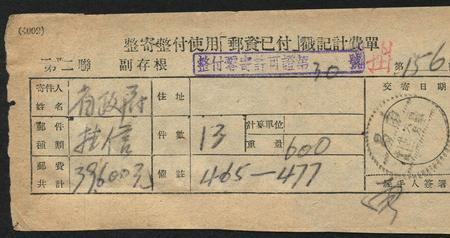 (4002)
整寄整付使用「郵資已付」戳記計費單
第二聯 副存根 整付零寄許可證第30號 掛 第156
寄件人姓名 省政府 住址 交寄日期
郵件種類 掛信 件數 13 計算單位重量 600
郵費共計 39600元 備註 465—477 經手人簽署